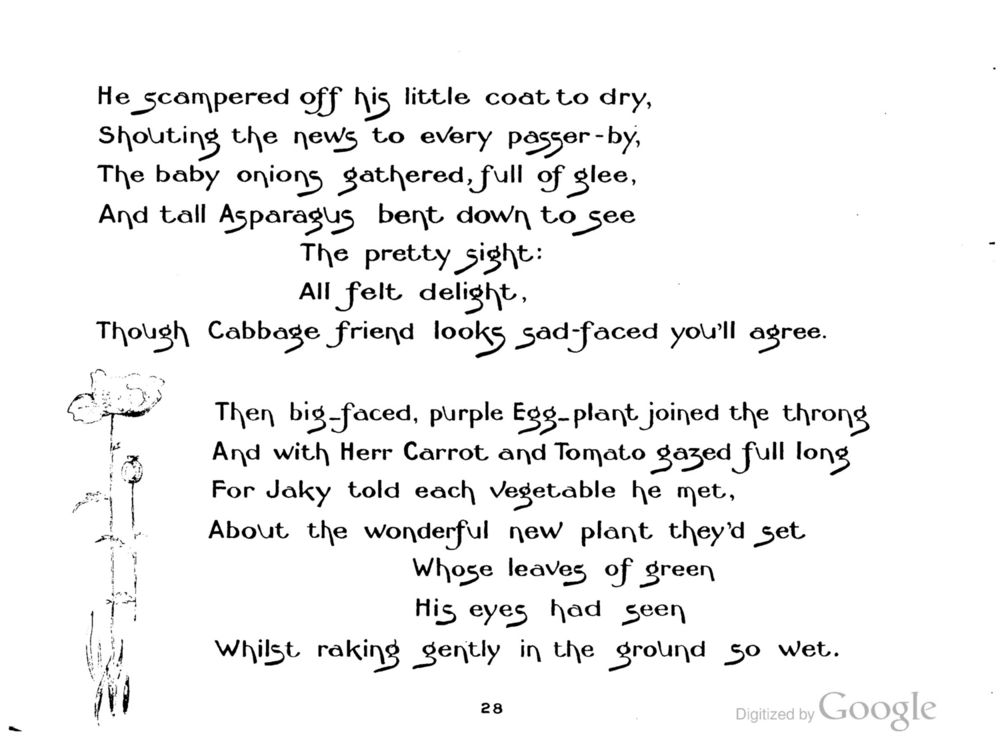 He scampered off his little coat to dry,
Shouting the news to every passer-by,
The baby onions gathered, full of glee,
And tall Asparagus bent down to see
The pretty sight:
All felt delight,
Though Cabbage friend looks sad-faced you'll agree.
Then big-faced, purple Egg-plant joined the throng
And with Herr Carrot and Tomato gazed full long
For Jaky told each vegetable he met,
About the wonderful new plant they'd set
Whose leaves of green
His eyes had seen
Whilst raking gently in the ground so wet.
28
Digitized by Google